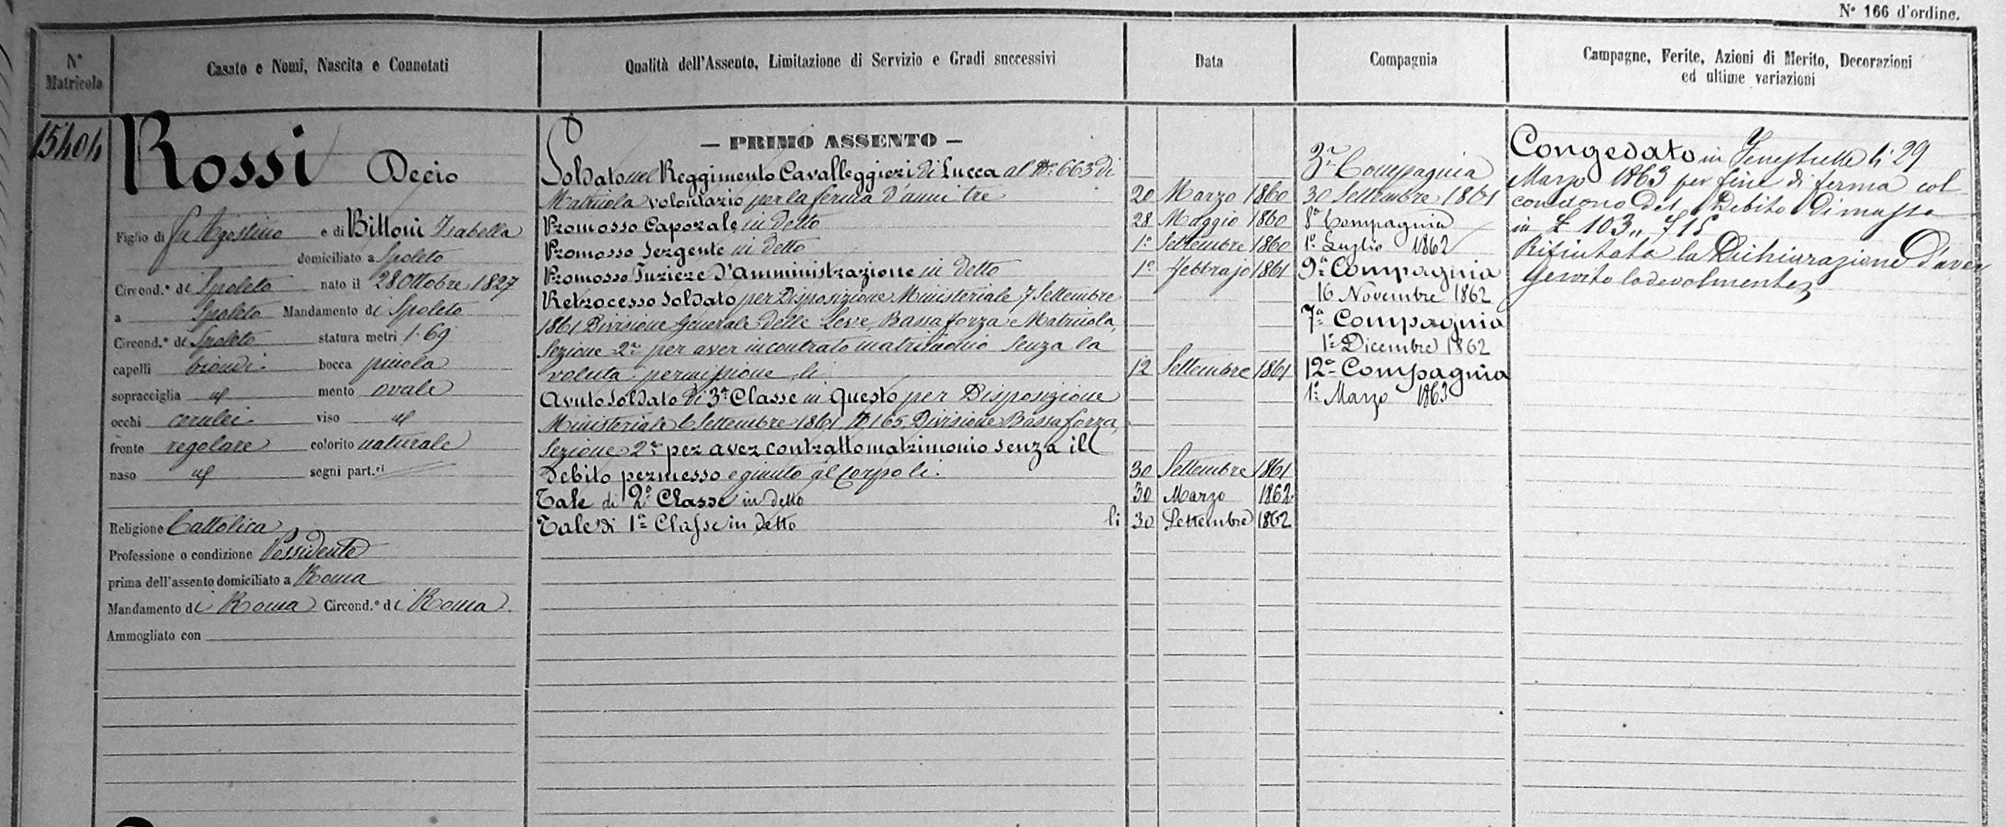 Nº 166 d'ordine.
Nº Matricola
Casato e Nomi, Nascita e Connotati
Qualità dell'Assento, Limitazione di Servizio e Gradi successivi
Data
Compagnia
Campagne, Ferite, Azioni di Merito, Decorazioni
ed ultime variazioni
15404
Rossi Decio
Figlio di fu Agostino e di Bittoni Isabella
domiciliato a Spoleto
Circond.º di Spoleto nato il 28 Ottobre 1827
a Spoleto Mandamento di Spoleto
Circond.º di Spoleto statura metri 1.69
capelli biondi bocca piccola
sopracciglia id mento ovale
occhi cerulei viso id
fronte regolare colorito naturale
naso id segni part.ri
Religione Cattolica
Professione o condizione Possidente
prima dell'assento domiciliato a Roma
Mandamento di Roma Circond.º di Roma
Ammogliato con
— PRIMO ASSENTO —
Soldato nel Reggimento Cavalleggieri di Lucca al Nº 663 di
Matricola volontario per la ferma d'anni tre 20 Marzo 1860
Promosso Caporale in detto 28 Maggio 1860
Promosso Sergente in detto 1º Settembre 1860
Promosso Furiere d'Amministrazione in detto 1º Febbrajo 1861
Retrocesso Soldato per Disposizione Ministeriale 7 Settembre
1861 Divisione Generale delle Leve, Bassa forza e Matricola,
Sezione 2ª per aver incontrato matrimonio senza la
voluta permissione li 12 Settembre 1861
Avuto Soldato di 3ª Classe in Questo per Disposizione
Ministeriale 6 Settembre 1861 Nº 165 Divisione Bassa forza,
Sezione 2ª per aver contratto matrimonio senza ill
Debito permesso e giunto al Corpo li. 30 Settembre 1861
Tale di 2ª Classe in detto 30 Marzo 1862
Tale di 1ª Classe in detto li 30 Settembre 1862
3ª Compagnia
30 Settembre 1861
8ª Compagnia
1º Luglio 1862
9ª Compagnia
16 Novembre 1862
7ª Compagnia
1º Dicembre 1862
12ª Compagnia
1º Marzo 1863
Congedato in Fenestrelle li 29
Marzo 1863 per fine di ferma col
condono del Debito di massa
in £ 103,, 715
Rifiutata la Dichiarazione d'aver
servito lodevolmente